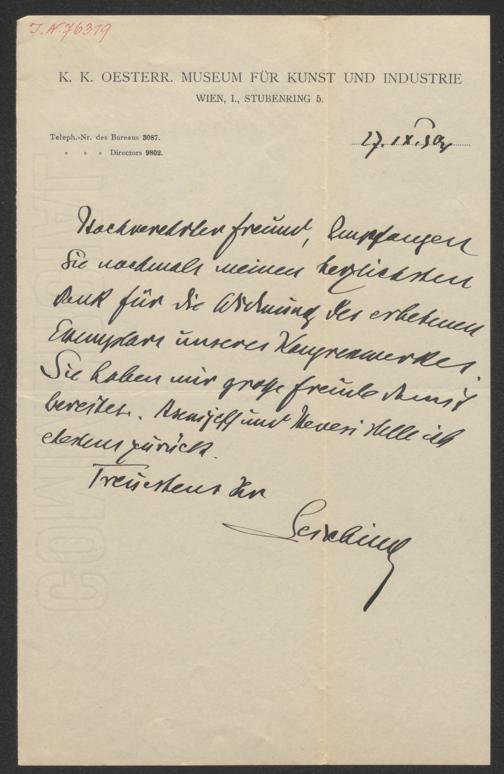 J.N. 76319
K. K. OESTERR. MUSEUM FÜR KUNST UND INDUSTRIE
WIEN, I., STUBENRING 5.
Teleph.-Nr. des Bureaus 3087.
" " " Directors 9802.
27. IX.
Hochverehrter Freund, Empfangen
Sie nochmals meinen herzlichsten
Dank für die Widmung des erbetenen
Exemplars unseres Kongresswerkes.
Sie haben mir große Freude damit
bereitet. und Hevesi stelle ich
ehestens zurück.
Treuestens Ihr
Leisching